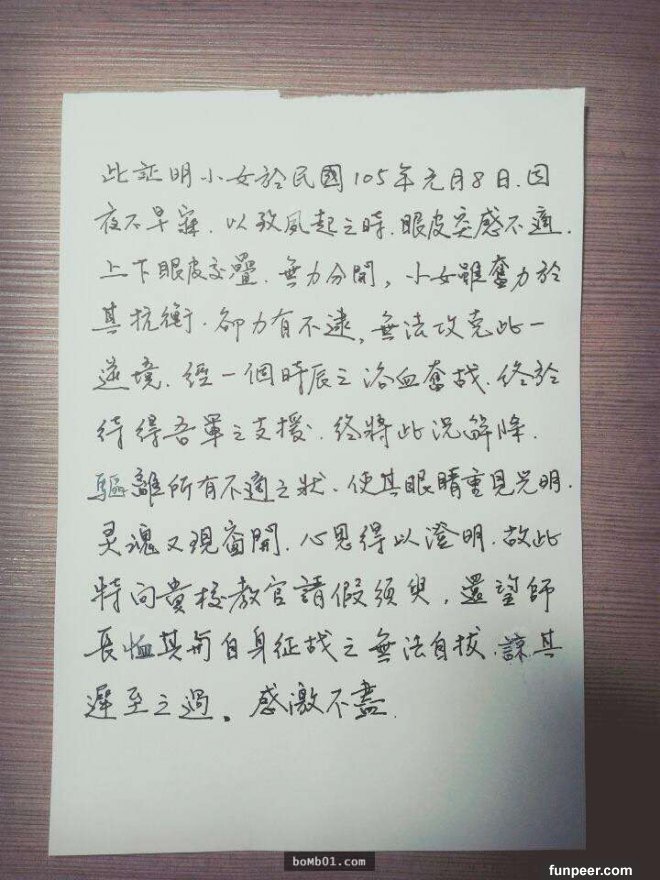 此証明小女於民國105年元月8日.因
夜不早寐.以致風起之時.眼皮突感不適.
上下眼皮交疊.無力分開,小女雖奮力於
其抗衡.卻力有不逮,無法攻克此一
逆境.經一個時辰之浴血奮战.終於
待得吾軍之支援.終將此況解降.
驅離所有不適之狀、使其眼睛重見光明.
灵魂又現窗開.心思得以澄明.故此
特向貴校教官請假須臾,還望師
長恤其為自身征战之無法自拔.諒其
遲至之過。感激不盡.
boMb01.com
funpeer.com